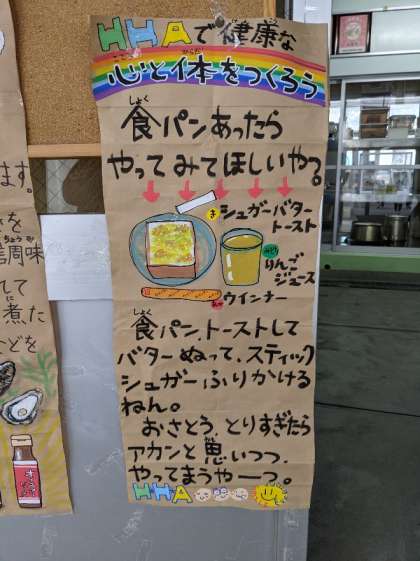 HHAで健康な
心と体をつくろう
食パンあったら
やってみてほしいやつ。
シュガーバター
トースト
りんご
ジュース
ウインナー
食パン、トーストして
バターぬって、スティック
シュガーふりかける
ねん。
おさとう、とりすぎたら
アカンと思いつつ、
やってまうやーつ。
HHA
ます。
調味
して
煮た
などを